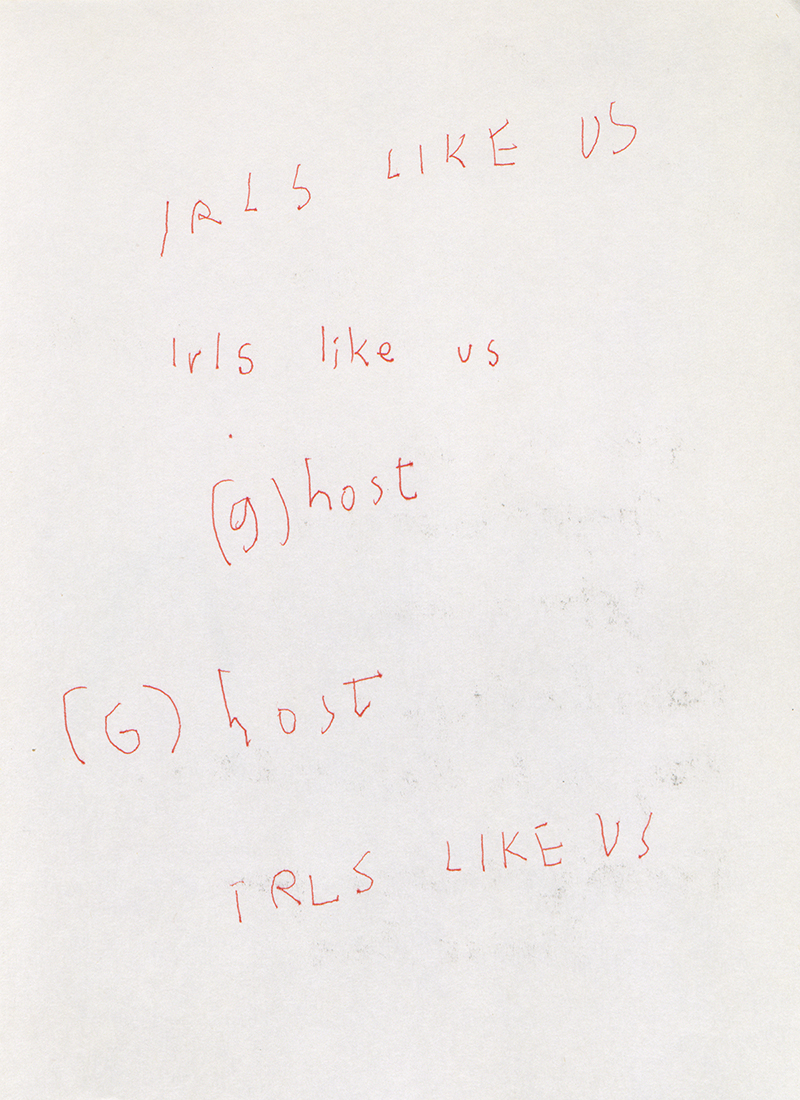 IRLS LIKE US
Irls like us
(g)host
(G)host
IRLS LIKE US